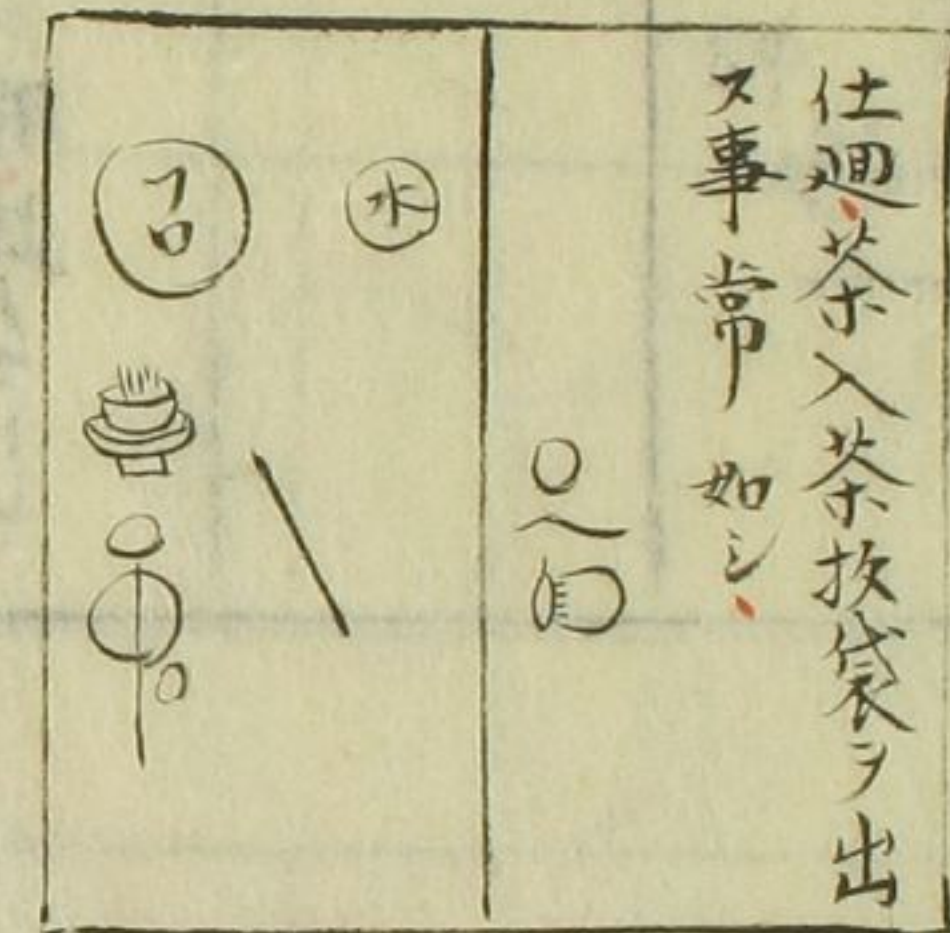 仕廻茶入茶杓袋ヲ出
ス事常如シ
水
フロ